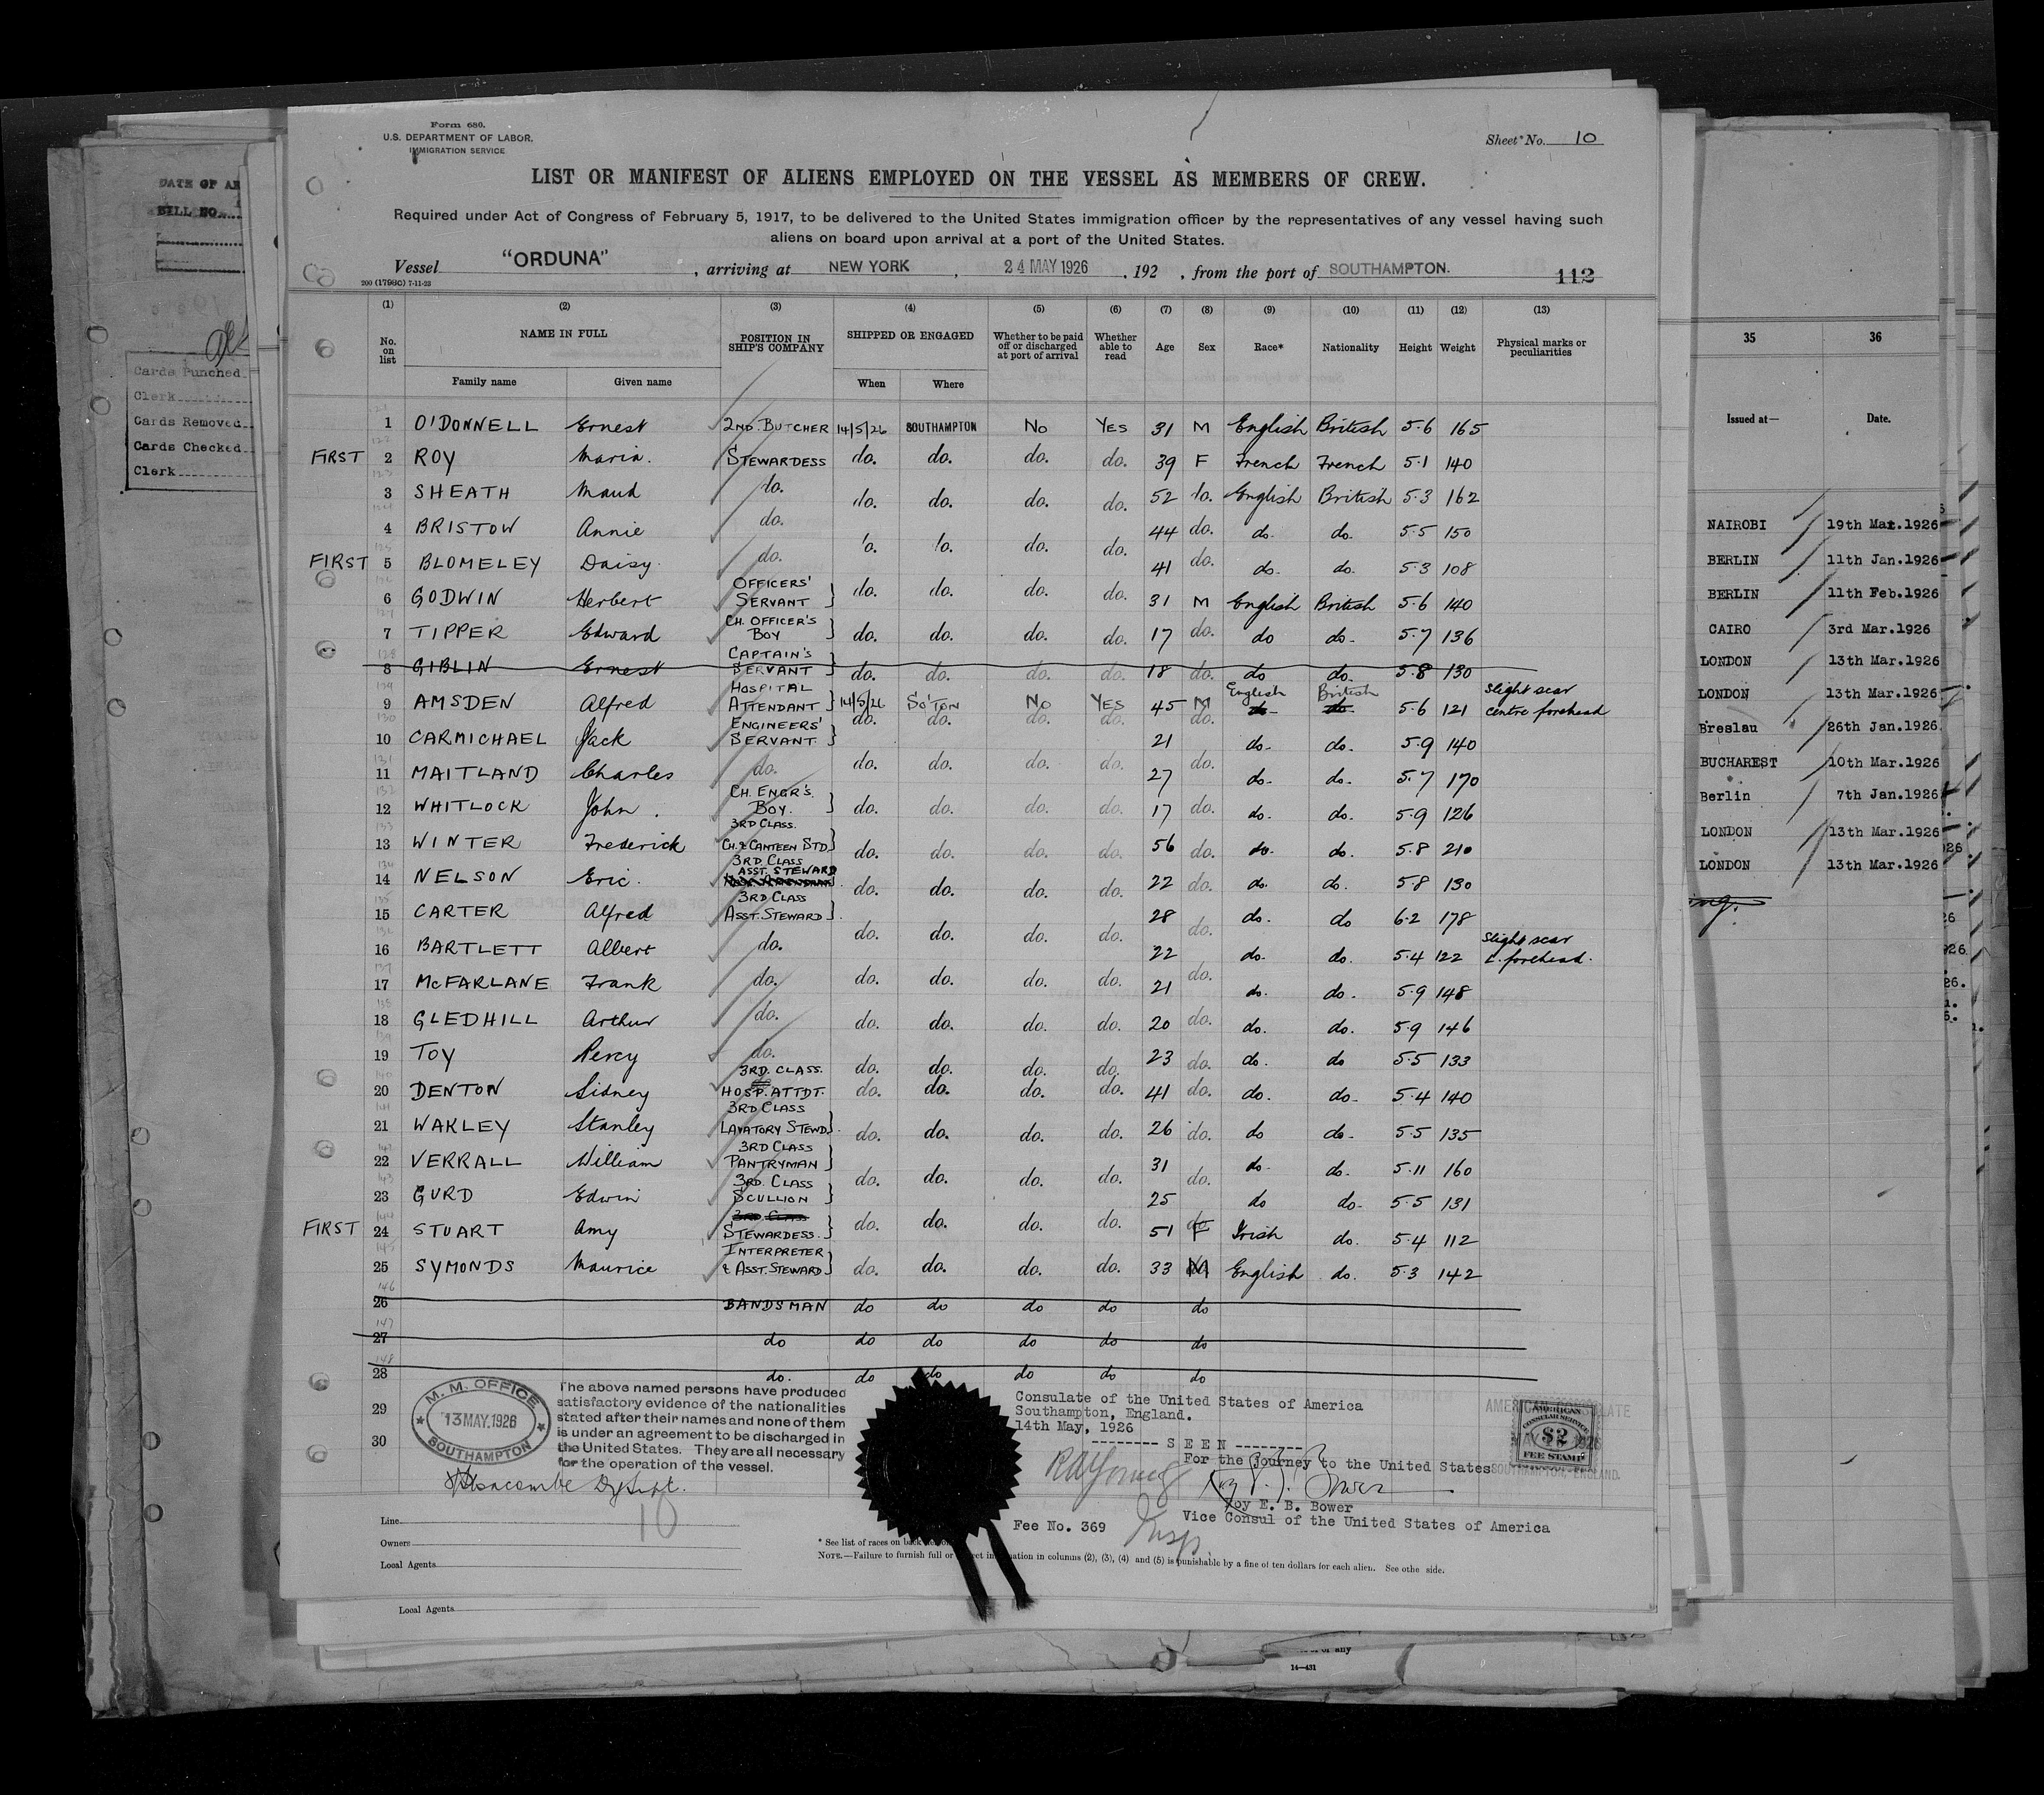 Form 680.
U.S. DEPARTMENT OF LABOR.
IMMIGRATION SERVICE
Sheet No. 10
LIST OR MANIFEST OF ALIENS EMPLOYED ON THE VESSEL AS MEMBERS OF CREW.
Required under Act of Congress of February 5, 1917, to be delivered to the United States immigration officer by the representatives of any vessel having such
aliens on board upon arrival at a port of the United States.
Vessel "ORDUNA", arriving at NEW YORK, 24 MAY 1926, 192 , from the port of SOUTHAMPTON. 112
200 (1798C) 7-11-23
(1) (2) (3) (4) (5) (6) (7) (8) (9) (10) (11) (12) (13)
No. on list NAME IN FULL POSITION IN SHIP'S COMPANY SHIPPED OR ENGAGED Whether to be paid off or discharged at port of arrival Whether able to read Age Sex Race* Nationality Height Weight Physical marks or peculiarities
Family name Given name When Where
1 O'DONNELL Ernest 2ND. BUTCHER 14/5/26 SOUTHAMPTON No YES 31 M English British 5.6 165
FIRST 2 ROY Maria. STEWARDESS do. do. do. do. 39 F French French 5.1 140
3 SHEATH Maud do. do. do. do. do. 52 do. English British 5.3 162
4 BRISTOW Annie do. 44 do. do. do. 5.5 150
FIRST 5 BLOMELEY Daisy. do. do. do. do. do. 41 do. do. do. 5.3 108
6 GODWIN Herbert OFFICERS' SERVANT } do. do. do. do. 31 M English British 5.6 140
7 TIPPER Edward CH. OFFICER'S BOY } do. do. do. do. 17 do. do do. 5.7 136
8 GIBLIN Ernest CAPTAIN'S SERVANT } do. do. do. do. 18 do. do do. 5.8 130
9 AMSDEN Alfred HOSPITAL ATTENDANT } 14/5/26 SO'TON No YES 45 M English British do do 5.6 121 Slight scar centre forehead
10 CARMICHAEL Jack ENGINEERS' SERVANT. } do. do. do. do. 21 do. do. do. 5.9 140
11 MAITLAND Charles do. do. do. do. do. 27 do. do. do. 5.7 170
12 WHITLOCK John. CH. ENGR'S. BOY. } do. do. do. do. 17 do. do. do. 5.9 126
13 WINTER Frederick 3RD CLASS. CH. & CANTEEN STD } do. do. do. do. 56 do. do. do. 5.8 210
14 NELSON Eric. 3RD CLASS ASST. STEWARD do. do. do. do. 22 do. do. do. 5.8 130
15 CARTER Alfred 3RD CLASS ASST. STEWARD } 28 do. do 6.2 178
16 BARTLETT Albert do. do. do. do. do. 22 do. do. do. 5.4 122 Slight scar L. forehead.
17 McFARLANE Frank do. do. do. do. do. 21 do. do. do. 5.9 148
18 GLEDHILL Arthur do. do. do. do. do. 20 do. do. do. 5.9 146
19 TOY Percy do. do. do. do. do. 23 do. do. do 5.5 133
20 DENTON Sidney 3RD. CLASS. HOSP. ATTDT. do. do. do. do. 41 do. do. do. 5.4 140
21 WAKLEY Stanley 3RD CLASS LAVATORY STEWD. } do. do. do. do. 26 do. do do. 5.5 135
22 VERRALL William 3RD CLASS PANTRYMAN } 31 do. do. 5.11 160
23 GURD Edwin 3RD. CLASS SCULLION } do. do. do. do. 25 do. do do. 5.5 131
FIRST 24 STUART Amy 3RD CLASS STEWARDESS. } do. do. do. do. 51 F Irish do. 5.4 112
25 SYMONDS Maurice INTERPRETER & ASST. STEWARD } do. do. do. do. 33 M English do. 5.3 142
26 BANDSMAN do do do do do
27 do do do do do do
28 do. do do do do do
29
30
M. M. OFFICE
13 MAY. 1926
SOUTHAMPTON
The above named persons have produced
satisfactory evidence of the nationalities
stated after their names and none of them
is under an agreement to be discharged in
the United States. They are all necessary
for the operation of the vessel.
10
Consulate of the United States of America
Southampton, England.
14th May, 1926
--------- S E E N --------
For the journey to the United States
Roy E. B. Bower
Vice Consul of the United States of America
Fee No. 369
Insp.
AMERICAN CONSULATE
AMERICAN
CONSULAR SERVICE
$2
FEE STAMP
SOUTHAMPTON, ENGLAND.
Line
Owners
Local Agents
* See list of races on back
NOTE.—Failure to furnish full or in columns (2), (3), (4) and (5) is punishable by a fine of ten dollars for each alien. See side.
Local Agents
or any
14—431
DATE OF AR
BILL NO.
Cards Punched
Clerk
Cards Removed
Cards Checked
Clerk
35 36
Issued at— Date.
NAIROBI 19th Mar.1926
BERLIN 11th Jan.1926
BERLIN 11th Feb.1926
CAIRO 3rd Mar.1926
LONDON 13th Mar.1926
LONDON 13th Mar.1926
Breslau 26th Jan.1926
BUCHAREST 10th Mar.1926
Berlin 7th Jan.1926
LONDON 13th Mar.1926
LONDON 13th Mar.1926